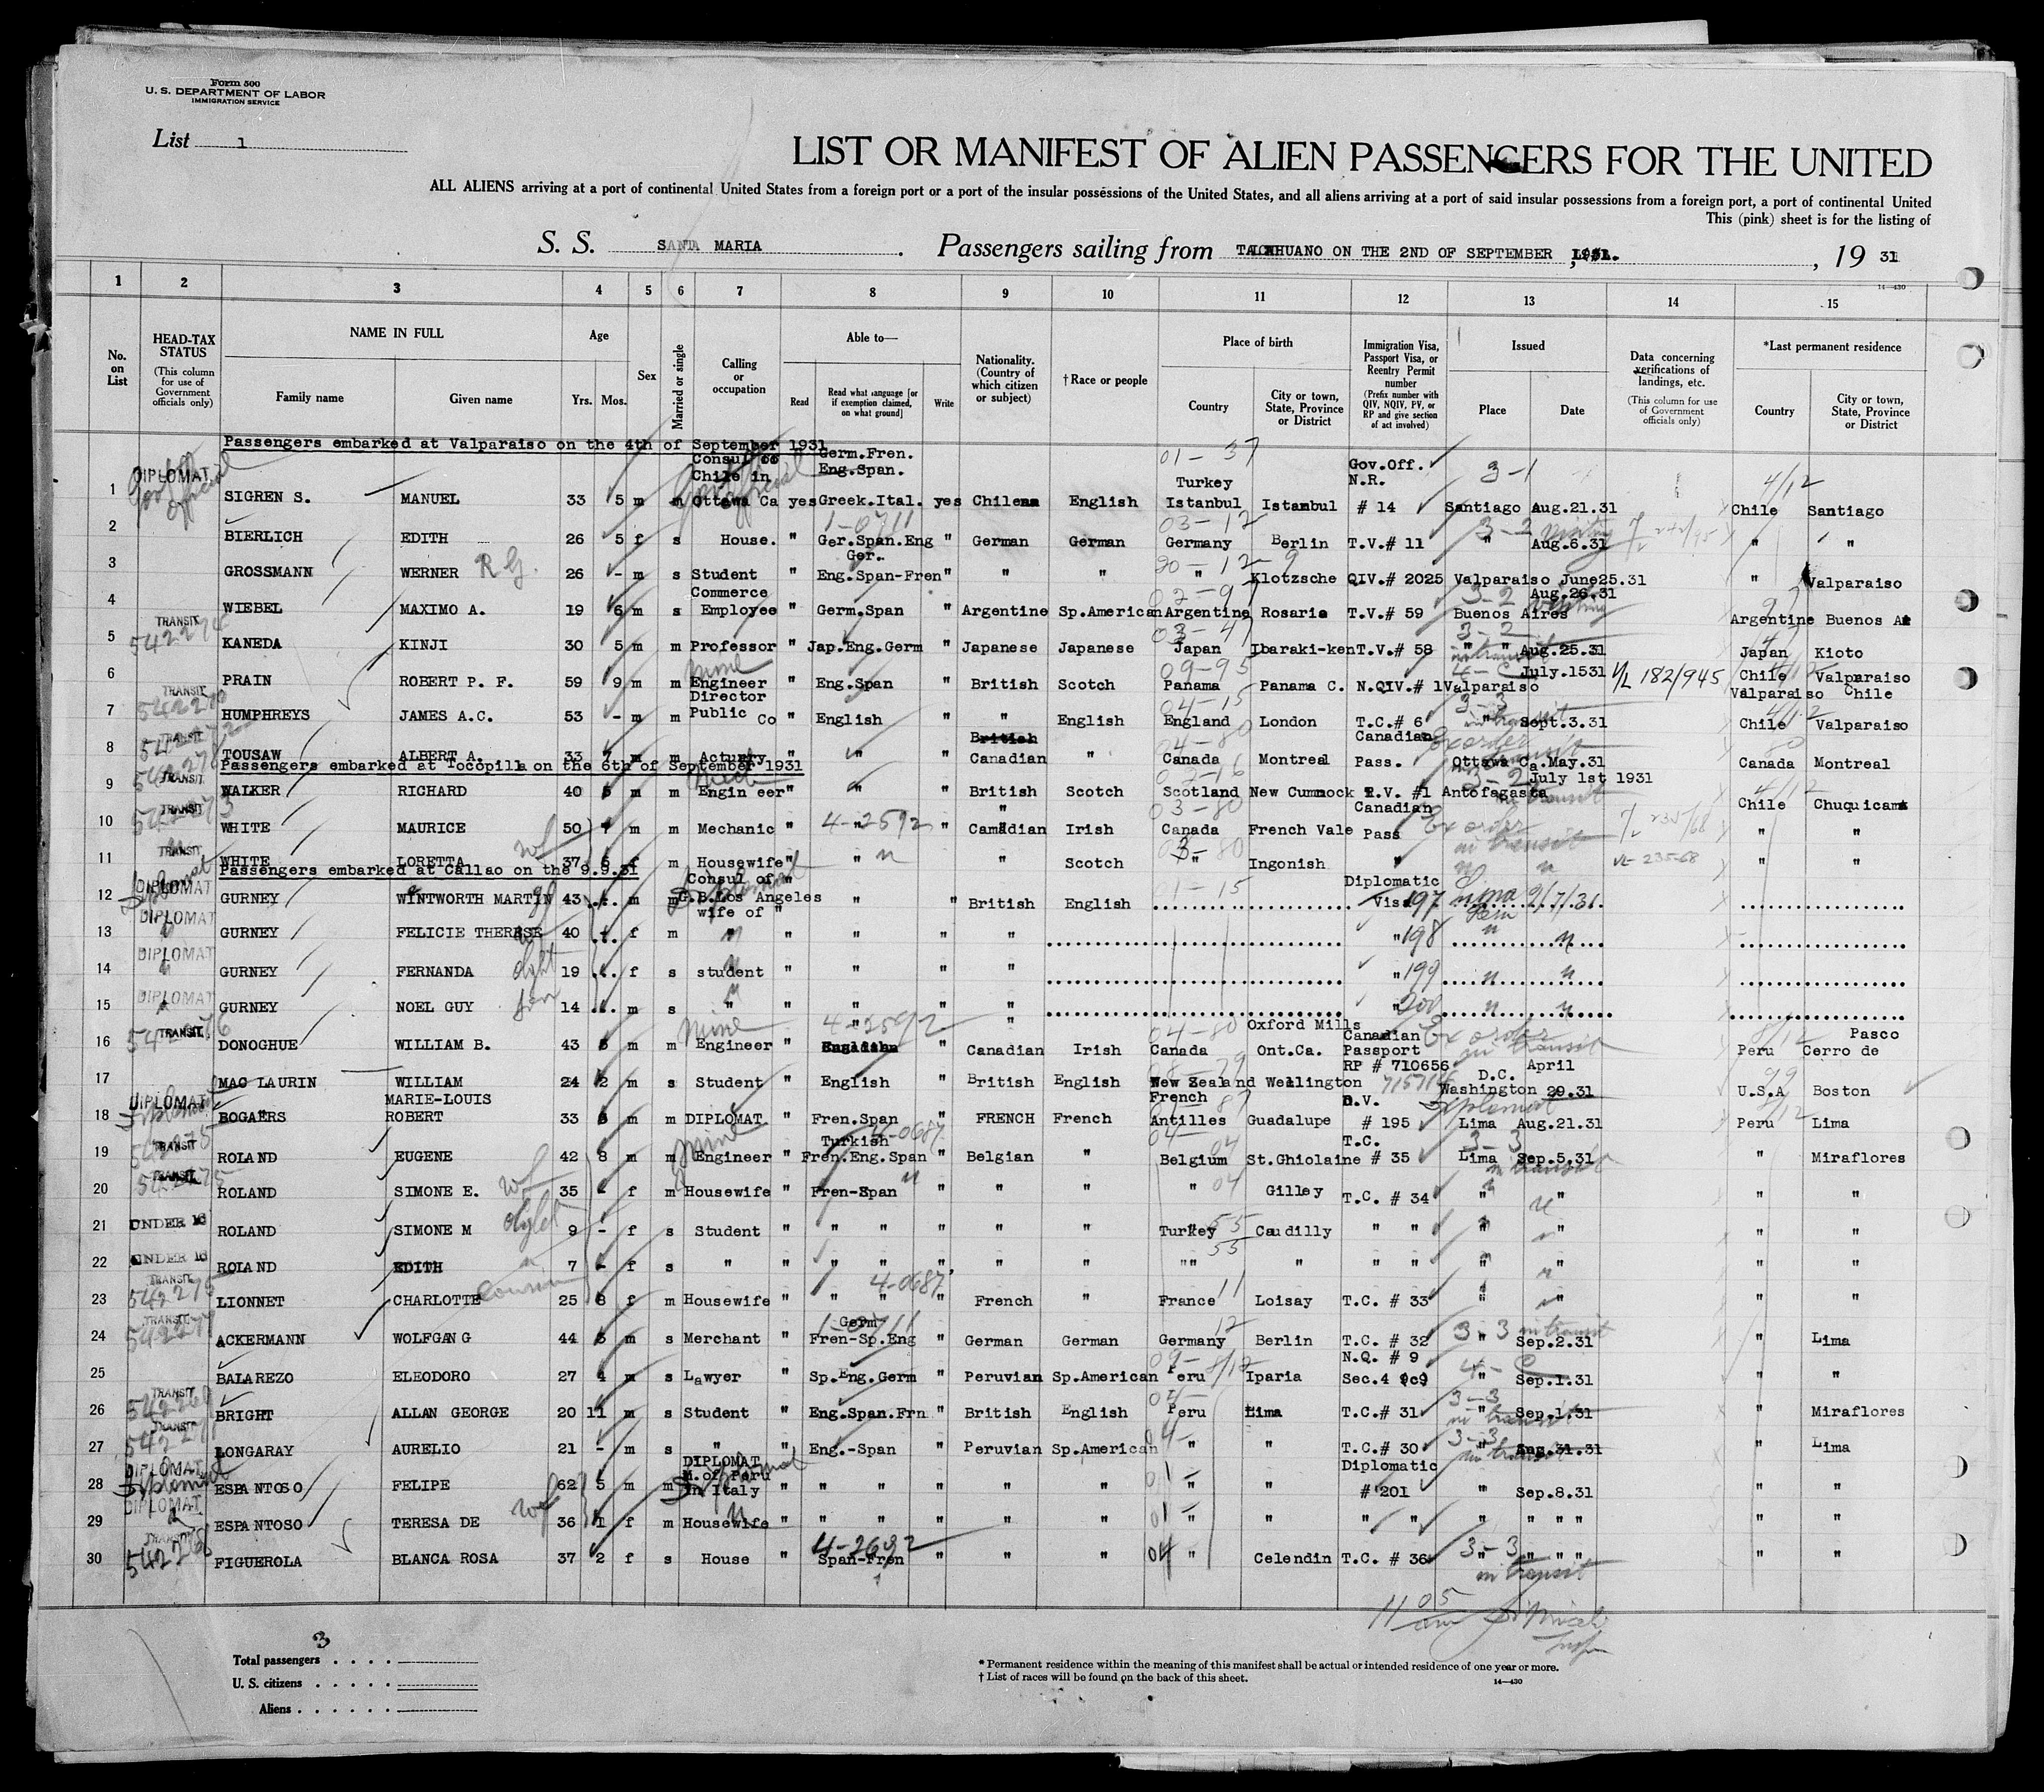 Form 500
U. S. DEPARTMENT OF LABOR
IMMIGRATION SERVICE
List 1
LIST OR MANIFEST OF ALIEN PASSENGERS FOR THE UNITED
ALL ALIENS arriving at a port of continental United States from a foreign port or a port of the insular possessions of the United States, and all aliens arriving at a port of said insular possessions from a foreign port, a port of continental United
This (pink) sheet is for the listing of
S. S. SANTA MARIA . Passengers sailing from TALCAHUANO ON THE 2ND OF SEPTEMBER , 1931. , 19 31
14—430
1 2 3 4 5 6 7 8 9 10 11 12 13 14 15
No. on List
HEAD-TAX STATUS
(This column for use of Government officials only)
NAME IN FULL
Family name
Given name
Age
Yrs. Mos.
Sex
Married or single
Calling or occupation
Able to—
Read
Read what language [or if exemption claimed, on what ground]
Write
Nationality. (Country of which citizen or subject)
† Race or people
Place of birth
Country
City or town, State, Province or District
Immigration Visa, Passport Visa, or Reentry Permit number
(Prefix number with QIV, NQIV, PV, or RP and give section of act involved)
Issued
Place
Date
Data concerning verifications of landings, etc.
(This column for use of Government officials only)
*Last permanent residence
Country
City or town, State, Province or District
Passengers embarked at Valparaiso on the 4th of September 1931
DIPLOMAT Gov't official Consul of Germ.Fren. 01 - 37 Gov.Off. 3-1 4/12
Chile in Eng.Span. Turkey N.R.
1 SIGREN S. MANUEL 33 5 m m Ottawa Ca yes Greek.Ital. yes Chilean English Istanbul Istanbul # 14 Santiago Aug.21.31 Chile Santiago
1-0711 03-12 3-2 visiting
2 BIERLICH EDITH 26 5 f s House. " Ger.Span.Eng " German German Germany Berlin T.V.# 11 " Aug.6.31 " "
Ger.
3 GROSSMANN WERNER R G. 26 - m s Student " Eng.Span-Fren " " " " Klotzsche QIV.# 2025 Valparaiso June25.31 " Valparaiso
Commerce Aug.26.31
4 WIEBEL MAXIMO A. 19 6 m s Employee " Germ.Span " Argentine Sp.American Argentine Rosario T.V.# 59 Buenos Aires Argentine Buenos A
TRANSIT 542274 3-2
5 KANEDA KINJI 30 5 m m Professor " Jap.Eng.Germ " Japanese Japanese Japan Ibaraki-ken T.V.# 58 " " Aug.25.31 Japan Kioto
mine 09-95 July.1531 V/L 182/945
6 PRAIN ROBERT P. F. 59 9 m m Engineer " Eng.Span " British Scotch Panama Panama C. N.QIV.# 1 Valparaiso Chile Valparaiso
TRANSIT Director 04-15 3-3 Valparaiso Chile
7 HUMPHREYS JAMES A.C. 53 - m m Public Co " English " " English England London T.C.# 6 " Sept.3.31 Chile Valparaiso
TRANSIT British 04-80 Canadian Ex order
8 TOUSAW ALBERT A. 33 7 m m Actuary " " Canadian " Canada Montreal Pass. Ottawa Ca.May.31 Canada Montreal
Passengers embarked at Tocopilla on the 6th of September 1931
TRANSIT 3-2 July 1st 1931
9 WALKER RICHARD 40 5 m m Engineer " " British Scotch Scotland New Cummock T.V. #1 Antofagasta Chile Chuquicama
TRANSIT 542273 03-80 Canadian Ex order
10 WHITE MAURICE 50 7 m m Mechanic " 4-2592 " Canadian Irish Canada French Vale Pass in transit " "
TRANSIT
11 WHITE LORETTA wf 37 5 f m Housewife " " " Scotch " Ingonish " VL- 235-68 " "
Passengers embarked at Callao on the 9.9.31
DIPLOMAT Consul of " 01-15 Diplomatic
12 GURNEY WINTWORTH MARTIN 43 m m G.B.Los Angeles " " British English Visa 197 Lima Peru 2/7/31.
DIPLOMAT wife of "
13 GURNEY FELICIE THERESE 40 f m " " " " " 198 " "
DIPLOMAT
14 GURNEY FERNANDA 19 f s student " " " " " 199 " "
DIPLOMAT
15 GURNEY NOEL GUY 14 m s " " " " " " 200 " "
TRANSIT 542276 mine 4-2592 04-80 Oxford Mills Canadian Ex order 8/12 Pasco
16 DONOGHUE WILLIAM B. 43 m m Engineer " Canadian Irish Canada Ont.Ca. Passport in transit Peru Cerro de
RP # 710656 D.C. April
17 MAC LAURIN WILLIAM 24 2 m s Student " English " British English New Zealand Wellington 715716 Washington 29.31 U.S.A Boston
DIPLOMAT MARIE-LOUIS French D.V. Diplomat
18 BOGAERS ROBERT 33 m m DIPLOMAT " Fren.Span " FRENCH French Antilles Guadalupe # 195 Lima Aug.21.31 Peru Lima
TRANSIT 542275 mine Turkish 4-0687 04- T.C. 3-3
19 ROLAND EUGENE 42 8 m m Engineer " Fren.Eng.Span " Belgian " Belgium St.Ghiolaine # 35 Lima Sep.5.31 " Miraflores
TRANSIT 542275
20 ROLAND SIMONE E. wf 35 - f m Housewife " Fren-Span " " " " Gilley T.C. # 34 " " " "
UNDER 16
21 ROLAND SIMONE M 9 - f s Student " " " " " " Turkey Caudilly " " " " " "
UNDER 16
22 ROLAND EDITH 7 - f s " " " " " " " " " " " " " " "
TRANSIT 542275 4-0687
23 LIONNET CHARLOTTE cousin 25 8 f m Housewife " " " " French " France Loisay T.C. # 33 " " " "
TRANSIT 542277 Germ 1-0711 3-3 in transit
24 ACKERMANN WOLFGANG 44 m s Merchant " Fren-Sp.Eng " German German Germany Berlin T.C. # 32 " Sep.2.31 " Lima
N.Q. # 9
25 BALAREZO ELEODORO 27 4 m s Lawyer " Sp.Eng.Germ " Peruvian Sp.American Peru Iparia Sec.4 " Sep.1.31 " "
TRANSIT 04- 3-3
26 BRIGHT ALLAN GEORGE 20 11 m s Student " Eng.Span.Frn " British English Peru Lima T.C.# 31 " Sep.1.31 " Miraflores
TRANSIT 04- 3-3
27 LONGARAY AURELIO 21 - m s " " Eng.-Span " Peruvian Sp.American " " T.C.# 30 " Aug.31.31 " Lima
DIPLOMAT DIPLOMAT M.of Peru 01- Diplomatic
28 ESPANTOSO FELIPE 62 5 m m in Italy " " " " " " " " # 201 " Sep.8.31 " "
DIPLOMAT 01-
29 ESPANTOSO TERESA DE wf 36 1 f m Housewife " " " " " " " " " " " " " " "
TRANSIT 4-2692 3-3
30 FIGUEROLA BLANCA ROSA 37 2 f s House " Span-Fren " " " 04 " Celendin T.C. # 36 " " " " " "
in transit
11 05 am
Total passengers . . . . 3
U. S. citizens . . . . .
Aliens . . . . . .
* Permanent residence within the meaning of this manifest shall be actual or intended residence of one year or more.
† List of races will be found on the back of this sheet.
14—430